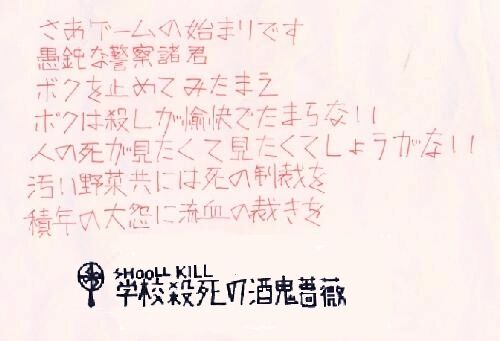 さあゲームの始まりです
愚鈍な警察諸君
ボクを止めてみたまえ
ボクは殺しが愉快でたまらない
人の死が見たくて見たくてしょうがない
汚い野菜共には死の制裁を
積年の大怨に流血の裁きを
SHooLL KILL
学校殺死の酒鬼薔薇